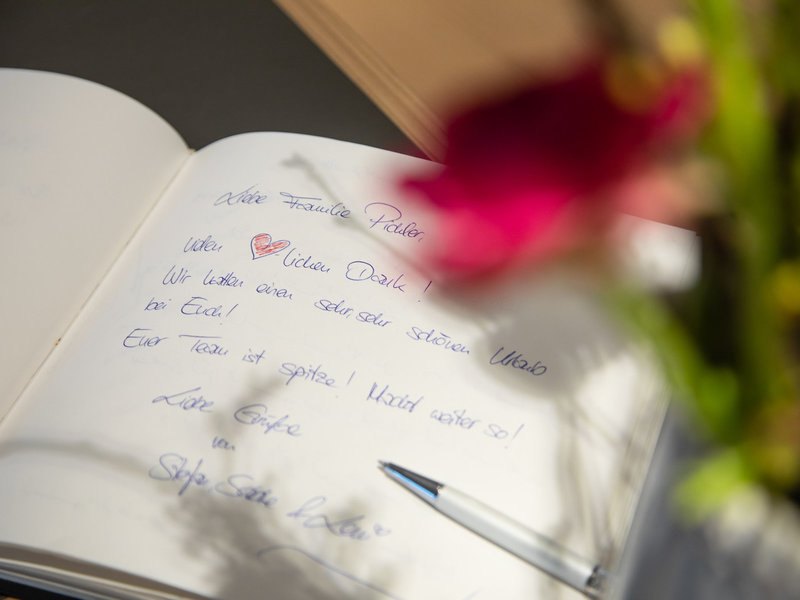 Liebe Familie Pichler,
vielen ❤-lichen Dank!
Wir hatten einen sehr, sehr schönen Urlaub
bei Euch!
Euer Team ist spitze! Macht weiter so!
Liebe Grüße
von